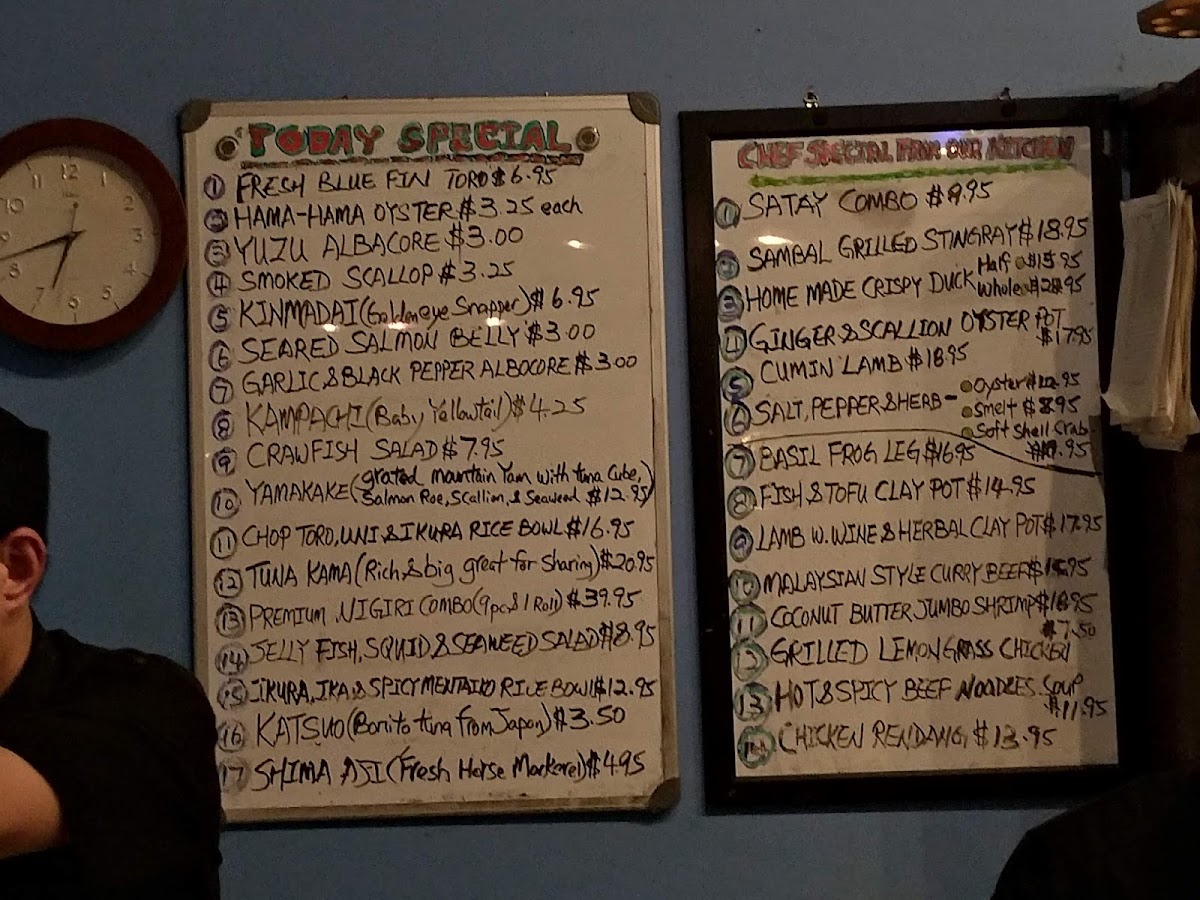 12
11
2
10
3
9
4
8
5
7
6
TODAY SPECIAL
1 FRESH BLUE FIN TORO $6.95
2 HAMA-HAMA OYSTER $3.25 each
3 YUZU ALBACORE $3.00
4 SMOKED SCALLOP $3.25
5 KINMADAI (Goldeneye Snapper) $6.95
6 SEARED SALMON BELLY $3.00
7 GARLIC & BLACK PEPPER ALBOCORE $3.00
8 KAMPACHI (Baby Yellowtail) $4.25
9 CRAWFISH SALAD $7.95
10 YAMAKAKE (grated mountain Yam with tuna Cube,
Salmon Roe, Scallion, & Seaweed $12.95)
11 CHOP TORO, UNI & IKURA RICE BOWL $16.95
12 TUNA KAMA (Rich & big great for Sharing) $20.95
13 PREMIUM NIGIRI COMBO (9pc & 1 Roll) $39.95
14 JELLY FISH, SQUID & SEAWEED SALAD $8.95
15 IKURA, IKA & SPICY MENTAIKO RICE BOWL $12.95
16 KATSUO (Bonito tuna from Japan) $3.50
17 SHIMA AJI (Fresh Horse Mackerel) $4.95
CHEF SPECIAL FROM OUR KITCHEN
1 SATAY COMBO
2 SAMBAL GRILLED STINGRAY $18.95
Half
3 HOME MADE CRISPY DUCK Whole
4 GINGER & SCALLION OYSTER POT
$17.95
5 CUMIN LAMB $18.95
Oyster
6 SALT, PEPPER & HERB - Smelt $8.95
Soft Shell Crab
7 BASIL FROG LEG $16.95
8 FISH & TOFU CLAY POT $14.95
9 LAMB W. WINE & HERBAL CLAY POT $17.95
10 MALAYSIAN STYLE CURRY BEEF
11 COCONUT BUTTER JUMBO SHRIMP $16.95
$7.50
12 GRILLED LEMONGRASS CHICKEN
13 HOT & SPICY BEEF NOODLES SOUP
$11.95
14 CHICKEN RENDANG $13.95